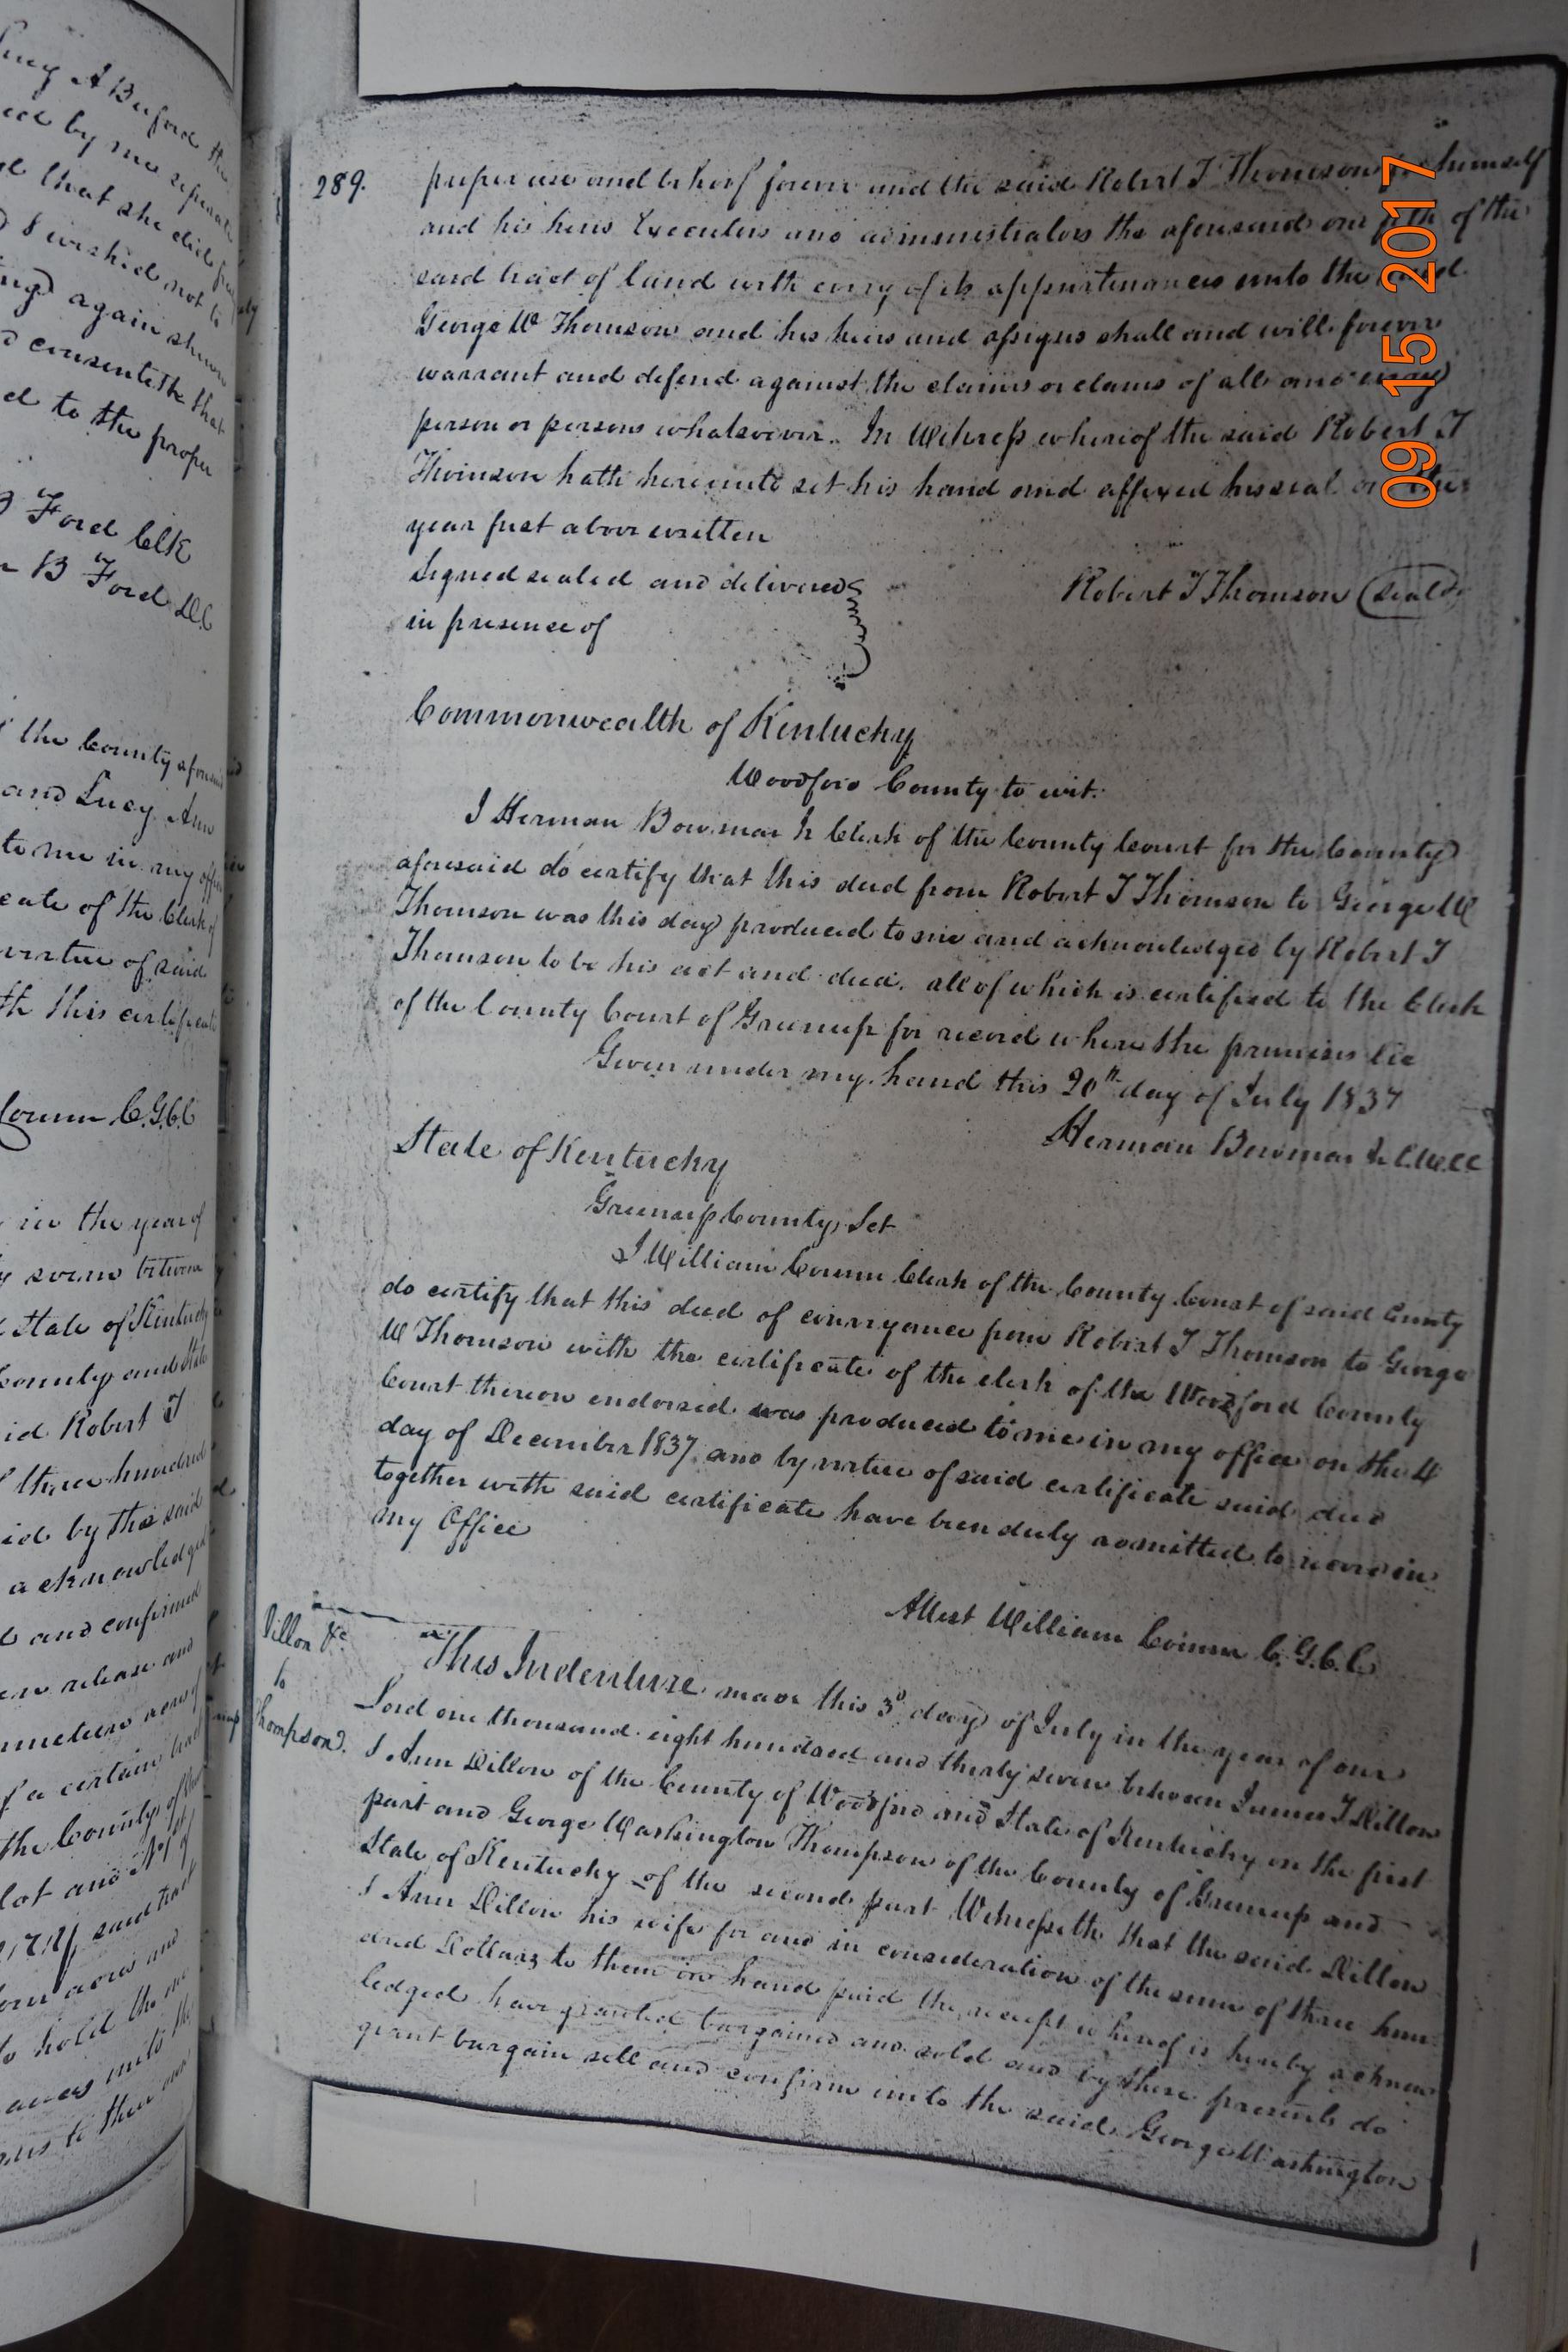 ucy A Buford the
ed by me separate
that she did freely
I wished not to
ing again shewn
consenteth that
ed to the proper
Ford Clk
B Ford D.C
the County aforesaid
and Lucy Ann
to me in my office
cate of the Clerk of
virtue of said
th this certificate
Corum C.G.C.C
in the year of
seven between
State of Kentucky
County and State
id Robert T
three hundred
id by the said
acknowledged
and confirmed
release and
nineteen acres of
f a certain tract
the County of
lot and No of
said tract
acres and
to hold the
unto the
to their
289.
proper use and behoof forever and the said Robert T Thomson for himself
and his heirs Executors and administrators the aforesaid one of the
said tract of land with every of its appurtenances unto the said
George W Thomson and his heirs and assigns shall and will forever
warrant and defend against the claims or claims of all and every
person or persons whatsoever. In Witness whereof the said Robert T
Thomson hath hereunto set his hand and affixed his seal on the
year first above written
Signed sealed and delivered
in presence of
Robert T Thomson (seal)
Commonwealth of Kentucky
Woodford County to wit:
I Herman Bowmar Jr Clerk of the County Court for the County
aforesaid do certify that this deed from Robert T Thomson to George W
Thomson was this day produced to me and acknowledged by Robert T
Thomson to be his act and deed. all of which is certified to the Clerk
of the County Court of Greenup for record where the premises lie
Given under my hand this 20th day of July 1837
Herman Bowmar Jr C.W.C.C
State of Kentucky
Greenup County, Sct
I William Corum Clerk of the County Court of said County
do certify that this deed of conveyance from Robert T Thomson to George
W Thomson with the certificate of the clerk of the Woodford County
Court thereon endorsed was produced to me in my office on the 4
day of December 1837 and by virtue of said certificate said deed
together with said certificate have been duly admitted to record in
my Office
Attest William Corum C.G.C.C.
Dillon &c
to
Thompson
This Indenture made this 3d day of July in the year of our
Lord one thousand eight hundred and thirty seven between James T Dillon
& Ann Dillon of the County of Woodford and State of Kentucky on the first
part and George Washington Thompson of the County of Greenup and
State of Kentucky of the second part Witnesseth that the said Dillon
& Ann Dillon his wife for and in consideration of the sum of three hun
dred Dollars to them in hand paid the receipt whereof is hereby acknow
ledged have granted bargained and sold and by these presents do
grant bargain sell and confirm unto the said George Washington
09 15 2017